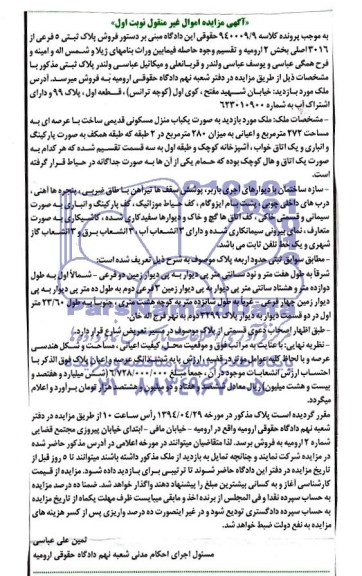 «آگهی مزایده اموال غیر منقول نوبت اول»
به موجب پرونده کلاسه ۹۴۰۰۰۹/۹ حقوقی این دادگاه مبنی بر دستور فروش پلاک ثبتی ۵ فرعی از
۳۰۱۶ اصلی بخش ۲ ارومیه و تقسیم وجوه حاصله فیمابین وراث بنامهای ژیلا و شمس اله و امینه و
فرح همگی عباسی و یوسف عباسی ولندر و قربانعلی و میکائیل عباسی ولندر پلاک ثبتی مذکور با
مشخصات ذیل از طریق مزایده در دفتر شعبه نهم دادگاه حقوقی ارومیه به فروش میرسد. آدرس
ملک مورد بازدید: خیابان شهید مفتح، کوی اول (کوچه ترانس) ، قطعه اول، پلاک ۹۹ و دارای
اشتراک آب به شماره ۶۲۳۰۱۰۹۰۰
- مشخصات ملک: ملک مورد بازدید به صورت یکباب منزل مسکونی قدیمی ساخت با عرصه ای به
مساحت ۲۷۲ مترمربع و اعیانی به میزان ۲۸۰ مترمربع در ۲ طبقه که طبقه همکف به صورت پارکینگ
و انباری و یک اتاق خواب ، آشپزخانه کوچک و طبقه اول به سه قسمت تقسیم شده که هر کدام به
صورت یک اتاق و هال کوچک بوده که حمام یکی از آن ها به صورت جداگانه در حیاط قرار گرفته
است.
- سازه ساختمان با دیوارهای آجری باربر، پوشش سقف ها تیرآهن با طاق ضربی ، پنجره ها آهنی ،
درب های داخلی چوبی ، پشت بام ایزوگام ، کف حیاط موزائیک ، کف پارکینگ و انباری به صورت
سیمانی و قسمتی خاکی ، کف اتاق ها گچ و خاک و دیوارها سفیدکاری شده ، کاشیکاری به صورت
متعارف ، نمای بیرونی سیمانکاری شده و دارای ۳ انشعاب آب، ۳ انشعاب برق و ۳ انشعاب گاز
شهری و یک خط تلفن ثابت می باشد.
- مطابق سوابق ثبتی حدود اربعه پلاک موصوف به شرح ذیل تعریف شده است:
شرقاً به طول هفت متر و نود سانتی متر پی به پی دیوار زمین دو فرعی - شمالاً اول به طول
دوازده متر و هشتاد سانتی متر پی دیوار به پی دیوار زمین ۳ فرعی دوم به طول ده متر پی به پی
دیوار زمین چهار فرعی - غرباً به طول شانزده متر به کوچه هشت متری ، جنوباً به طول ۲۳/۶۰ متر
اول در دو قسمت دیوار به دیوار پلاک ۳۲۹۹ دوم به نهر فرح اله خان.
- طبق اظهار اصحاب دعوی قسمتی از پلاک موصوف در مسیر تعریض شارع قرار دارد.
- نظریه نهایی: با عنایت به مراتب فوق و موقعیت محل، کیفیت اعیانی ، مساحت و شکل هندسی
عرصه و با لحاظ کلیه عوامل موثر در قضیه ارزش پایه ششدانگ عرصه و اعیان پلاک فوق الذکر با
احتساب ارزش انشعابات موجود در آن، جمعاً مبلغ ۶/۷۲۸/۰۰۰/۰۰۰ (شش میلیارد و هفتصد و
بیست و هشت میلیون) ریال معادل ششصد و هفتاد و دو میلیون و هشتصد هزار تومان برآورد و اعلام
میگردد.
مقرر گردیده است پلاک مذکور در مورخه ۱۳۹۴/۰۴/۲۹ رأس ساعت ۱۰ از طریق مزایده در دفتر
شعبه نهم دادگاه حقوقی ارومیه واقع در ارومیه - خیابان مافی - ابتدای خیابان پیروزی مجتمع قضایی
شماره ۲ ارومیه به فروش برسد. لذا متقاضیان میتوانند در مورخه اعلامی در آدرس مذکور حاضر شده
در مزایده شرکت نمایند و چنانچه تمایل به بازدید از ملک مذکور داشته باشند میتوانند تا ۵ روز قبل از
تاریخ مزایده در دفتر این دادگاه حاضر شوند تا ترتیبی برای بازدید داده شود. مزایده از قیمت
کارشناسی آغاز و به کسانی بیشترین مبلغ را پیشنهاد دهند واگذار خواهد شد. ضمنا ده درصد مزایده
به حساب سپرده نقدا و فی المجلس از برنده اخذ و مابقی میبایست ظرف مهلت یکماه از تاریخ مزایده
به حساب سپرده دادگستری تودیع شود و در غیر اینصورت ده درصد واریزی پس از کسر هزینه های
مزایده به نفع دولت ضبط خواهد شد.
ثمین علی عباسی
مسئول اجرای احکام مدنی شعبه نهم دادگاه حقوقی ارومیه